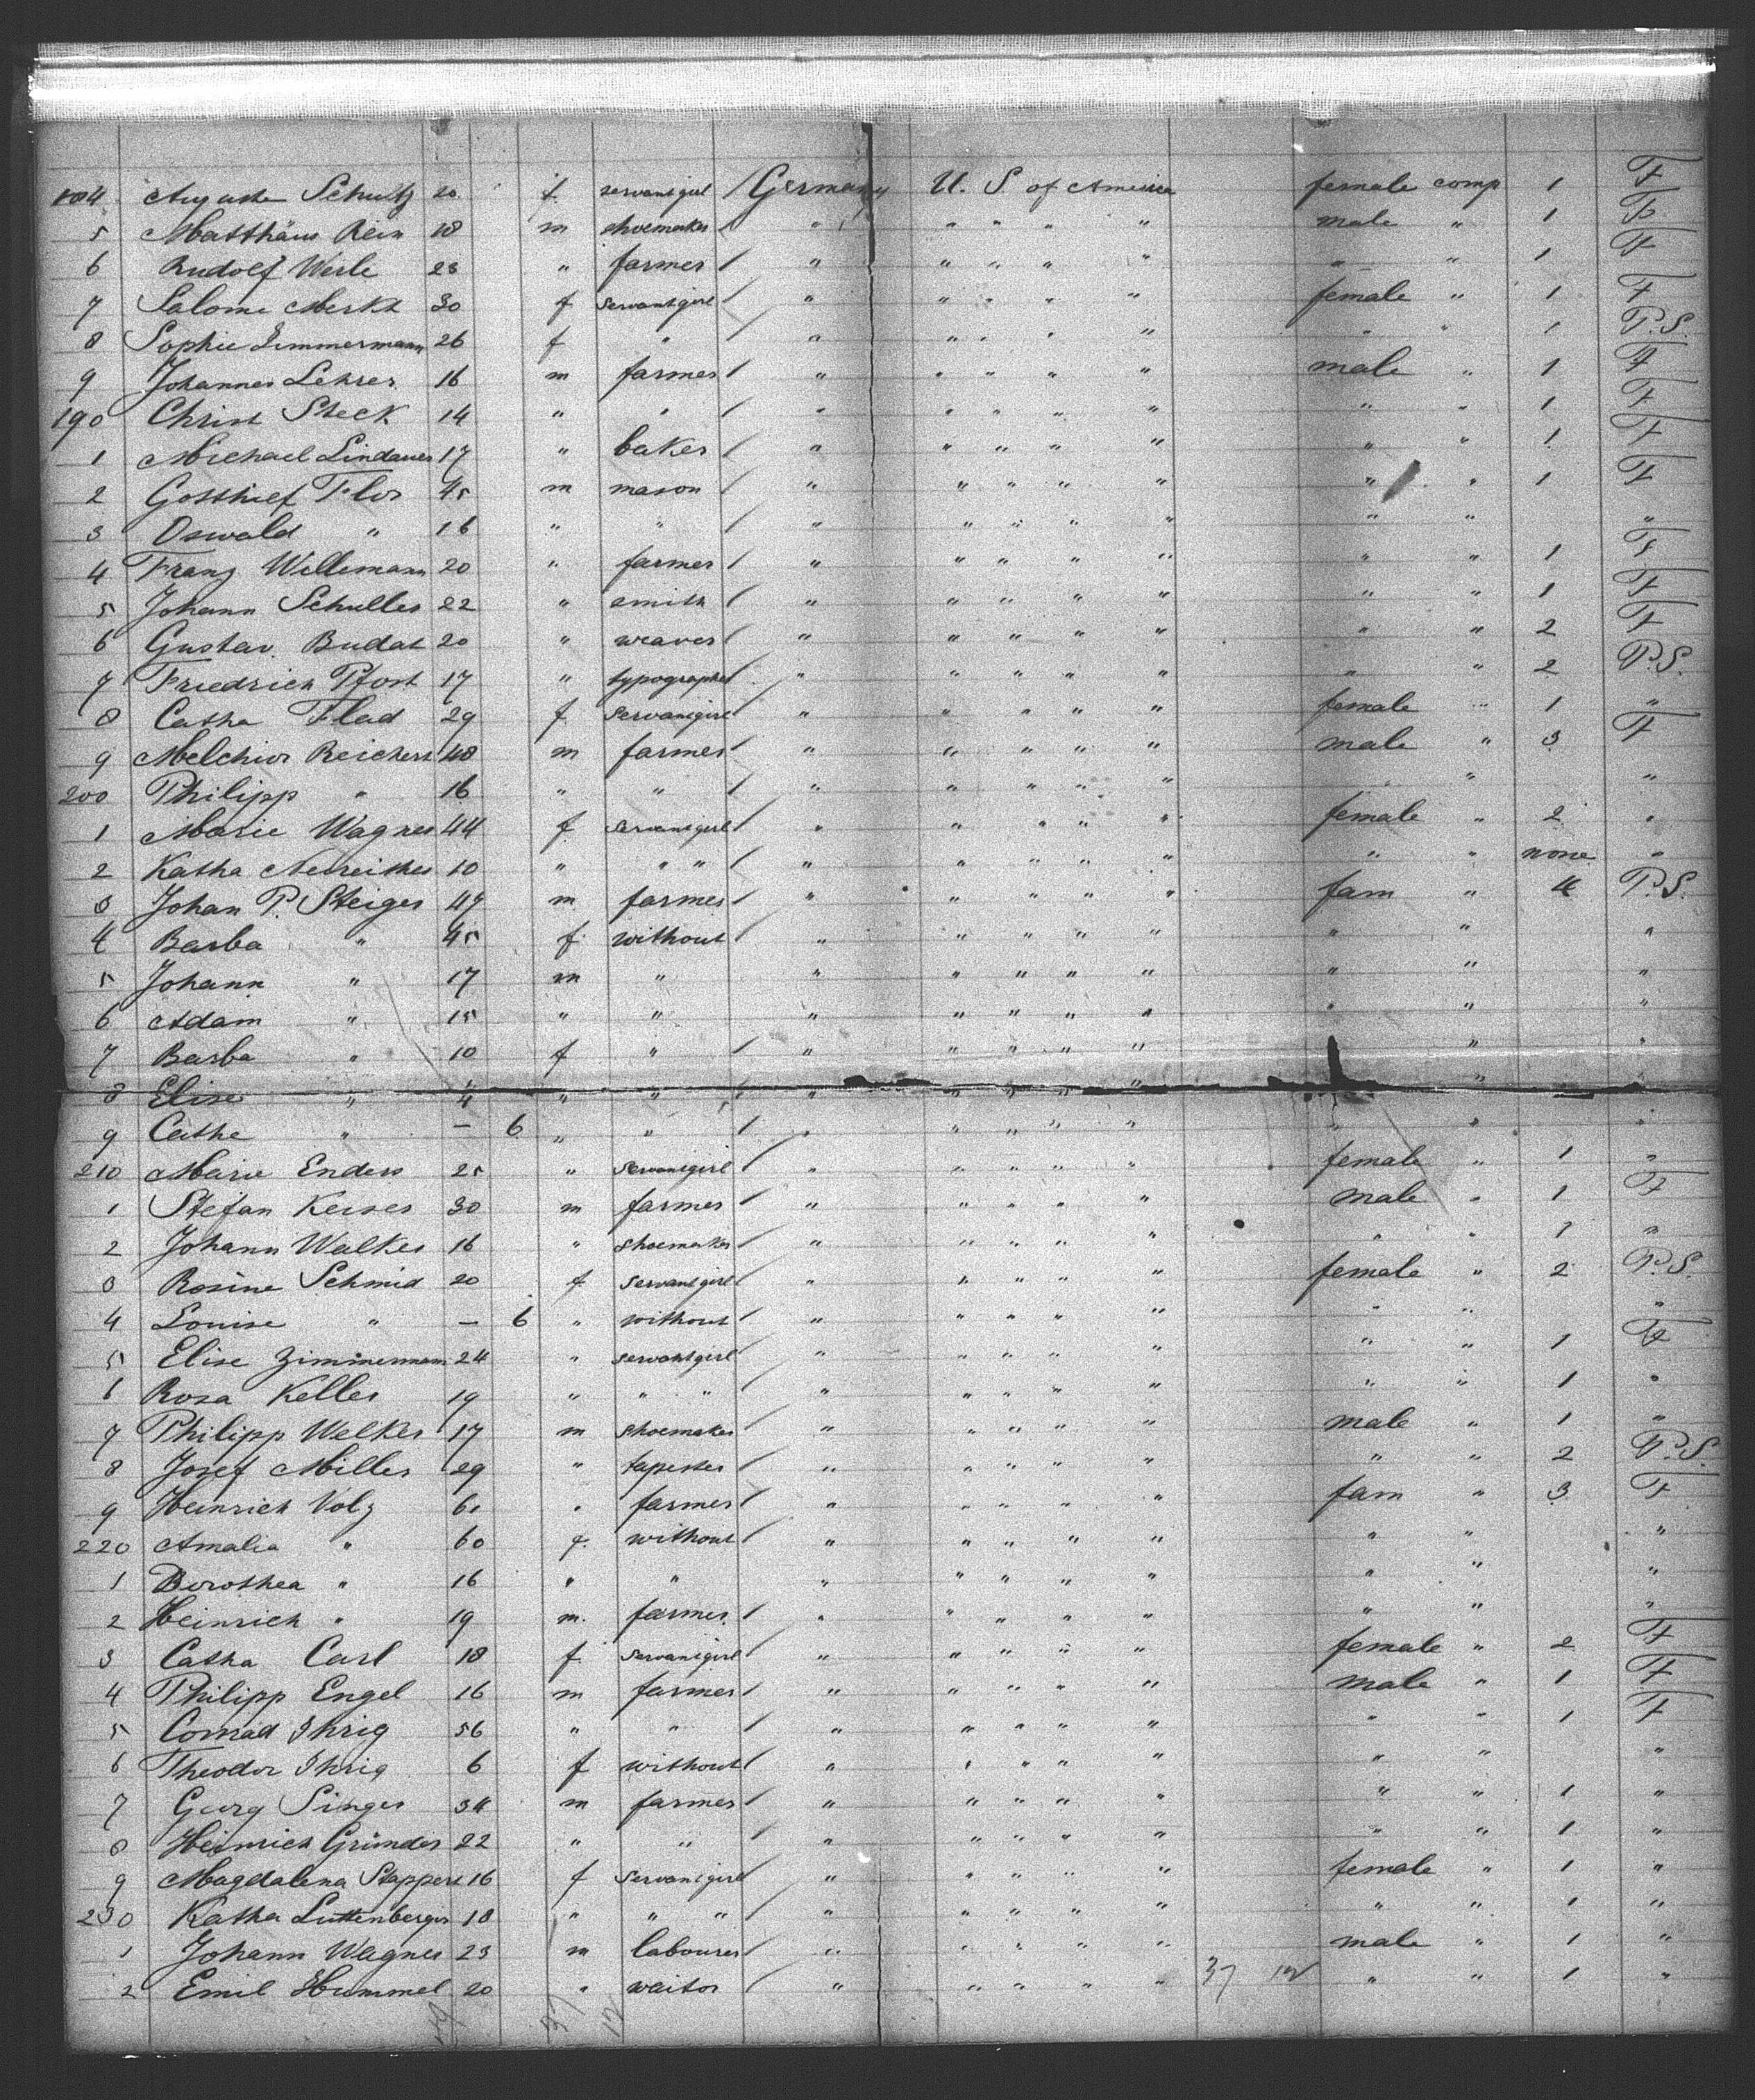 184 Auguste Schultz 20 f. servantgirl / Germany U. S of America female comp 1 F
5 Matthäus Rein 18 m shoemaker / " " " " " male " 1 P.
6 Rudolf Werle 23 " farmer / " " " " " " " 1 F
7 Salome Merkt 30 f servantgirl / " " " " " female " 1 F
8 Sophie Zimmermann 26 f " / " " " " " " " 1 P.S.
9 Johannes Lehrer 16 m farmer / " " " " " male " 1 F
190 Christ Steck 14 " " / " " " " " " " 1 F
1 Michael Lindauer 17 " baker / " " " " " " " 1 F
2 Gotthilf Flor 45 m mason / " " " " " " " 1 F
3 Oswald " 16 " " / " " " " " " " "
4 Franz Willemann 20 " farmer / " " " " " " " 1 F
5 Johann Schuller 22 " smith / " " " " " " " 1 F
6 Gustav Budat 20 " weaver / " " " " " " " 2 F
7 Friedrich Pfost 17 " typographer / " " " " " " " 2 P.S.
8 Catha Flad 29 f servantgirl " " " " " female " 1 "
9 Melchior Reichert 48 m farmer / " " " " " male " 3 F
200 Philipp " 16 " " / " " " " " " "
1 Marie Wagner 44 f servantgirl / " " " " " female " 2 "
2 Katha 10 " " " / " " " " " " " none "
3 Johan P. Steiger 47 m farmer / " " " " " fam " 4 P.S.
4 Barba " 45 f without / " " " " " " " "
5 Johann " 17 m " " " " " " " " "
6 Adam " 15 " " " " " " " " " "
7 Barba " 10 f " / " " " " " " "
8 Elise " 4 " " / " " " " " "
9 Cathe " — 6 " " / " " " " " " " "
210 Marie Enders 25 " servantgirl / " " " " " female " 1 "
1 Stefan Kerses 30 m farmer / " " " " " male " 1 F
2 Johann Walker 16 " shoemaker / " " " " " " " 1 "
3 Rosine Schmid 20 f servantgirl " " " " " female " 2 P.S.
4 Louise " — 6 " without / " " " " " " " "
5 Elise Zimmermann 24 " servantgirl " " " " " " " 1 F
6 Rosa Keller 19 " " " / " " " " " " " 1 "
7 Philipp Welker 17 m shoemaker / " " " " " male " 1 "
8 Josef Miller 29 " tapester / " " " " " " " 2 P.S.
9 Heinrich Volz 61 " farmer / " " " " " fam " 3 F
220 Amalia " 60 f. without / " " " " " " " "
1 Dorothea " 16 " " " " " " " " " "
2 Heinrich " 19 m. farmer / " " " " " " " "
3 Catha Carl 18 f servantgirl " " " " " female " 2 F
4 Philipp Engel 16 m farmer / " " " " " male " 1 F
5 Conrad Ihrig 56 " " / " " " " " " " 1 F
6 Theodor Ihrig 6 f without / " " " " " " " "
7 Georg Singer 34 m farmer / " " " " " " " 1 "
8 Heinrich Gründer 22 " " / " " " " " " " 1 "
9 Magdalena Stappert 16 f servantgirl " " " " " female " 1 "
230 Katha Luttenberger 18 " " " / " " " " " " " 1 "
1 Johann Wagner 23 m labourer / " " " " " male " 1 "
2 Emil Hummel 20 " waitor / " " " " " 37 12 " " 1 "
37 12